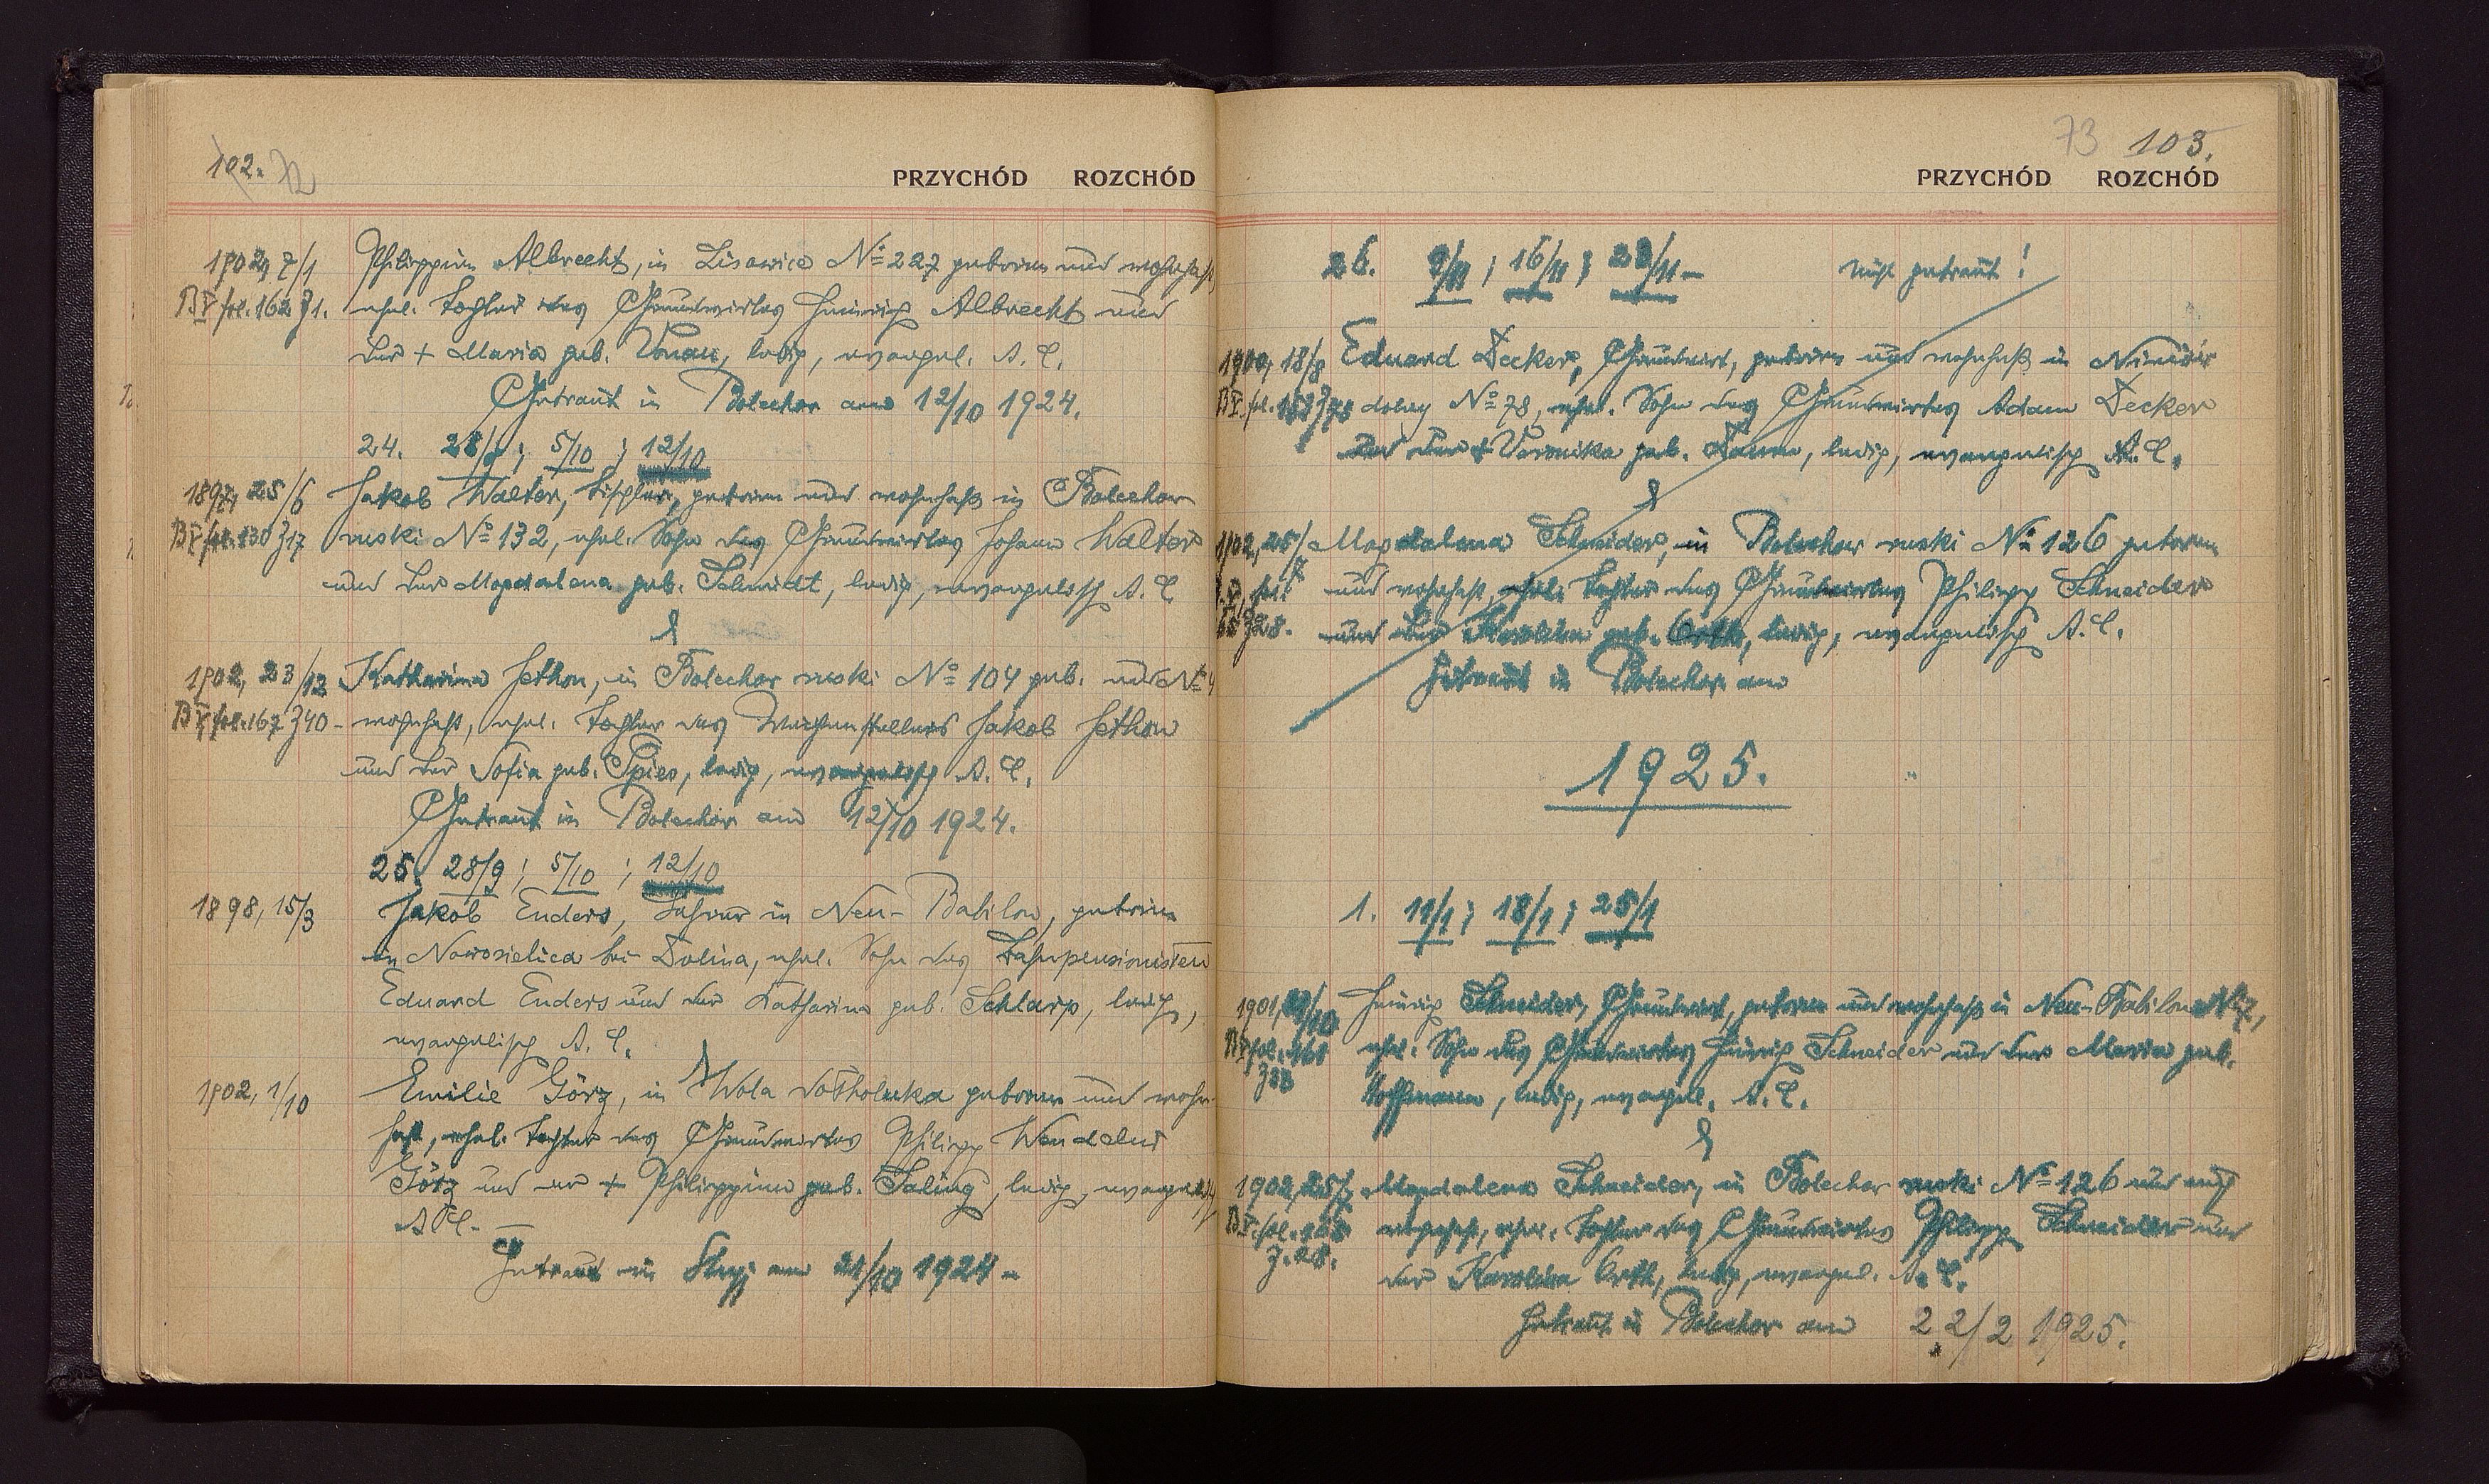 102. 72
PRZYCHÓD ROZCHÓD
1902, 7/1 Philippine Albrecht, in Lisowice № 227 geboren und wohnhaft,
B V fol. 162 Z 1. ehel. Tochter des Grundwirtes Heinrich Albrecht und
der + Maria geb. Vonau, ledig, evangel. A. C.
Getraut in Bolechow am 12/10 1924.
24. 28/9 ; 5/10 ; 12/10
1897, 25/6 Jakob Walter, Tischler, geboren und wohnhaft in Bolechow
B V fol. 130 Z 17 ruski № 132, ehel. Sohn des Grundwirtes Johann Walter
und der Magdalena geb. Schmidt, ledig, evangelisch A. C.
&
1902, 23/12 Katharina Jethon, in Bolechow ruski № 104 geb. und № 4
B V fol. 167 Z 40 wohnhaft, ehel. Tochter des Jakob Jethon
und der Sofia geb. Spies, ledig, evangelisch A. C.
Getraut in Bolechow am 12/10 1924.
25. 28/9 ; 5/10 ; 12/10
1898, 15/3 Jakob Enders, Lehrer in Neu-Babilon, geboren
in Nowosielica bei Dolina, ehel. Sohn des Bahnpensionisten
Eduard Enders und der Katharina geb. Schlarp, ledig,
evangelisch A. C.
&
1902, 1/10 Emilie Görz, in Wola geboren und wohn-
haft, ehel. Tochter des Grundwirtes Philipp Wendelin
Görz und der + Philippine geb. Saling, ledig, evangelisch
A C. —
Getraut in Stryj am 21/10 1924 -
73 103.
PRZYCHÓD ROZCHÓD
26. 9/11 ; 16/11 ; 23/11 - nicht getraut !
1900, 18/8 Eduard Decker, Grundwirt, geboren und wohnhaft in Niniów
B V. fol. 153 Z 78 dolny № 78, ehel. Sohn des Grundwirtes Adam Decker
und der + Veronika geb. ledig, evangelisch A. C.
&
1902, 25/7 Magdalena Schneider, in Bolechow ruski № 126 geboren
und wohnhaft, ehel. Tochter des Grundwirtes Philipp Schneider
165 Z 28. und der Karolina geb. Orth, ledig, evangelisch A. C.
Getraut in Bolechow am
1925.
1. 11/1 ; 18/1 ; 25/1
1901, /10 Heinrich Schneider, Grundwirt, geboren und wohnhaft in Neu-Babilon № 7,
B V fol. 161 ehel. Sohn des Grundwirtes Heinrich Schneider und der Maria geb.
Z 33 Hoffmann, ledig, evangel. A. C.
&
1902, 25/7 Magdalena Schneider, in Bolechow ruski № 126 und auch
B V. fol. 165 wohnhaft, ehel. Tochter des Grundwirtes Philipp Schneider und
Z. 28. der Karolina Orth, ledig, evangel. A. C.
Getraut in Bolechow am 22/2 1925.